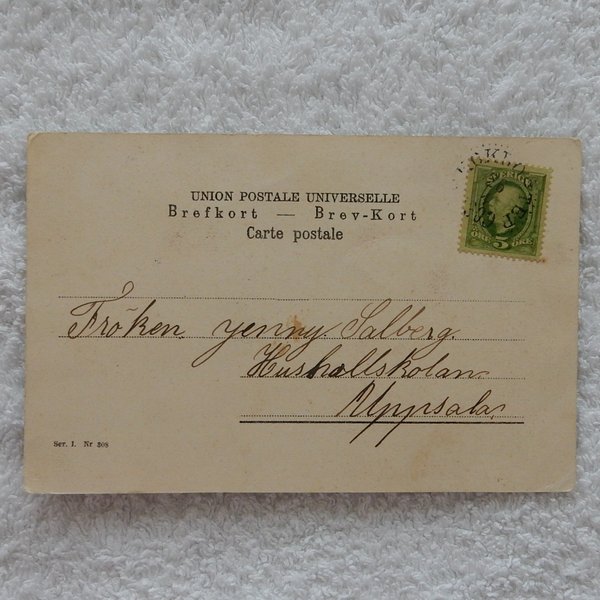 UNION POSTALE UNIVERSELLE
Brefkort — Brev-Kort
Carte postale
SVERIGE
ÖRE 5 ÖRE
Fröken Jenny Salberg.
Hushallskolan
Uppsala.
Ser. I. Nr 308